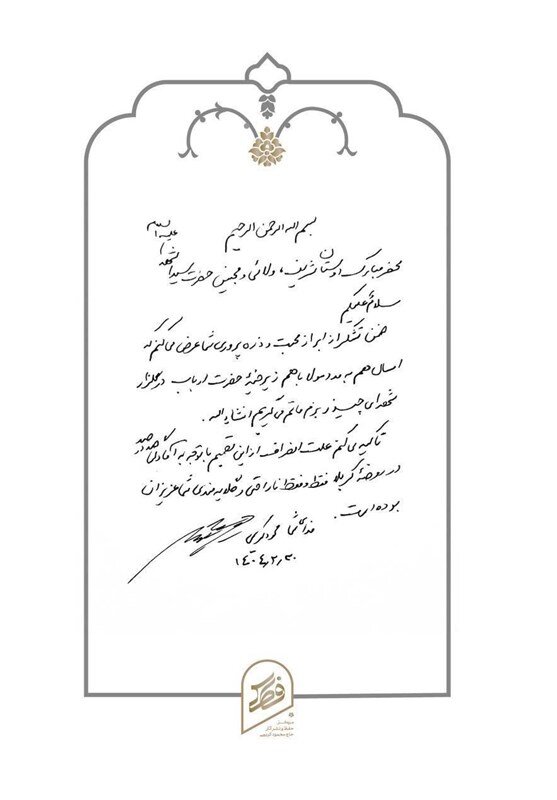 بسم اله الرحمن الرحیم
محضر مبارک دوستان شریف، ولائی و محبین حضرت سیدالشهدا علیه السلام
سلامٌ علیکم
ضمن تشکر از ابراز محبت و ذره پروری شما عرض می کنم که
امسال هم به مدد مولا باهم زیر خیمهٔ حضرت ارباب در گلزار
شهدای چیذر بزم ماتم می گیریم انشاءالله.
تأکید می کنم علت انصراف از این تصمیم با توجه به آمادگی صددرصد
در موضهٔ کربلا فقط و فقط ناراحتی و گلایه مندی شما عزیزان
بوده است.
فدای شما محمود کریمی
۱۴۰۴٫۳٫۳۰
حفظ و نشر آثار
حاج محمود کریمی